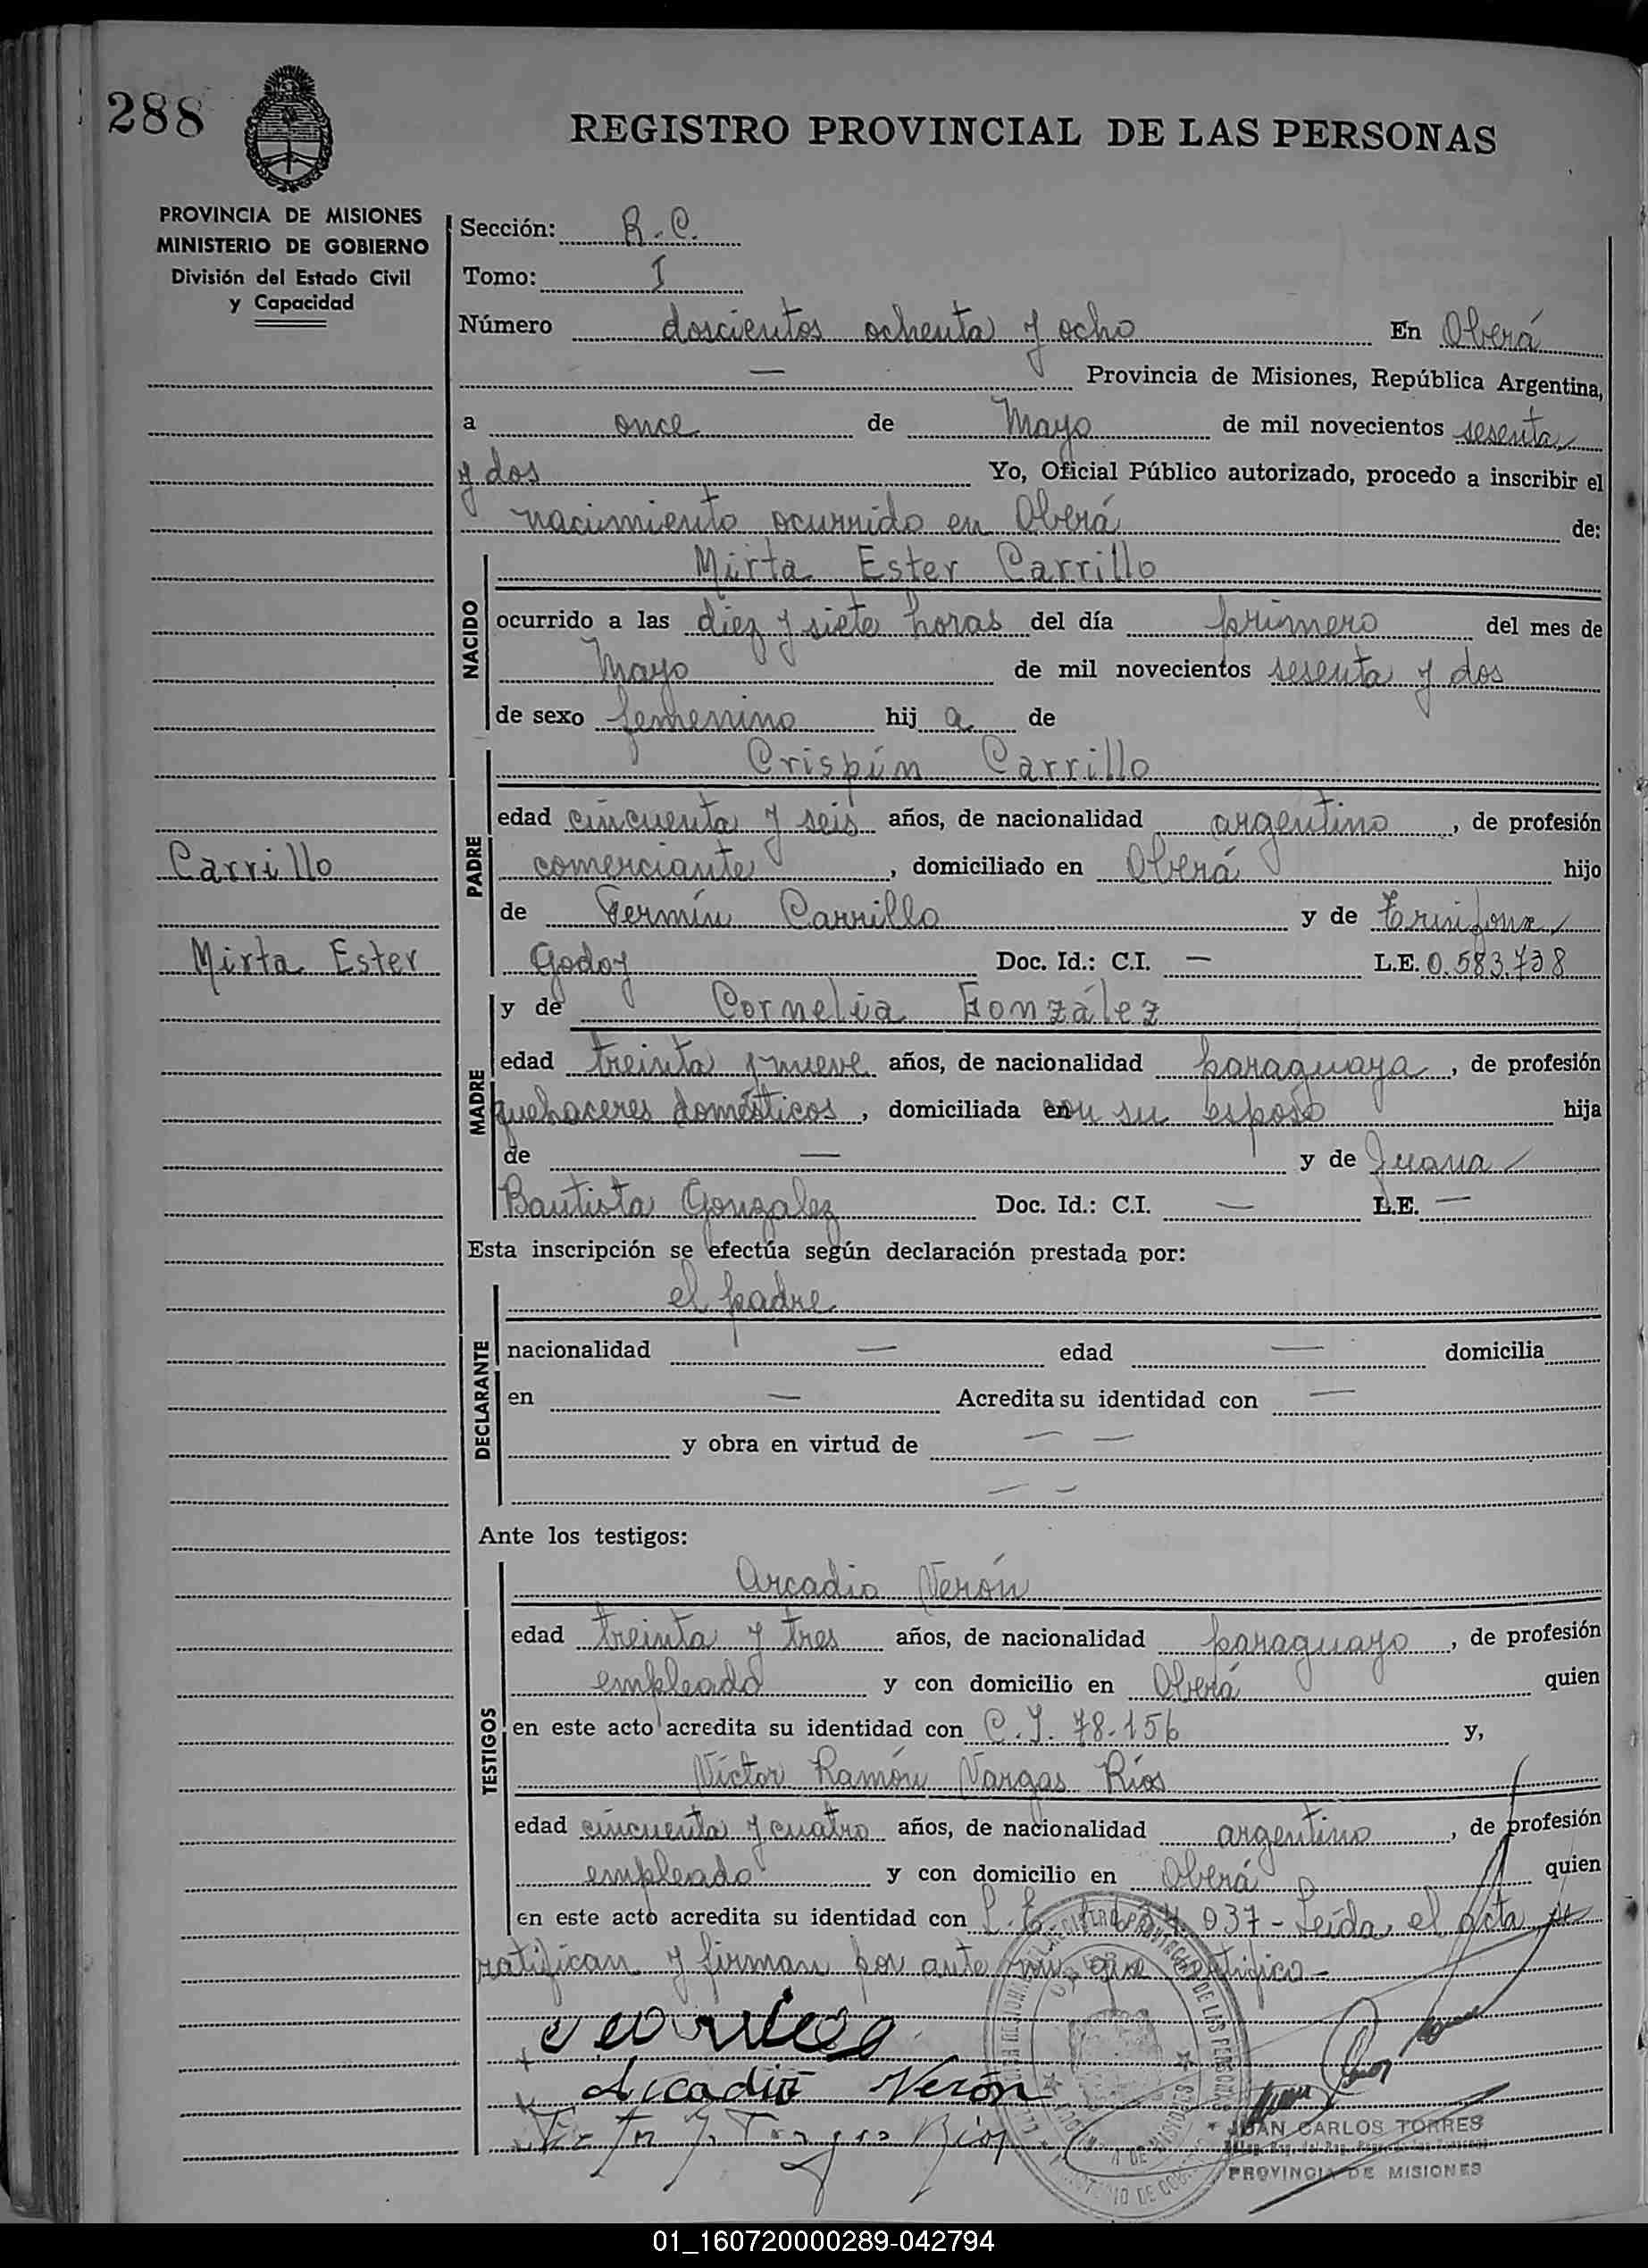 288
REGISTRO PROVINCIAL DE LAS PERSONAS
PROVINCIA DE MISIONES
MINISTERIO DE GOBIERNO
División del Estado Civil
y Capacidad
Sección: R. C.
Tomo: I
Número doscientos ochenta y ocho En Oberá
— Provincia de Misiones, República Argentina,
a once de Mayo de mil novecientos sesenta
y dos Yo, Oficial Público autorizado, procedo a inscribir el
nacimiento ocurrido en Oberá de:
NACIDO
Mirta Ester Carrillo
ocurrido a las diez y siete horas del día primero del mes de
Mayo de mil novecientos sesenta y dos
de sexo femenino hij a de
PADRE
Crispín Carrillo
edad cincuenta y seis años, de nacionalidad argentino, de profesión
Carrillo
comerciante, domiciliado en Oberá hijo
de Fermín Carrillo y de
Mirta Ester
Godoy Doc. Id.: C.I. — L.E. 0.583.738
MADRE
y de Cornelia González
edad treinta y nueve años, de nacionalidad paraguaya, de profesión
quehaceres domésticos, domiciliada con su esposo hija
de — y de Juana
Bautista Gonzalez Doc. Id.: C.I. — L.E. —
Esta inscripción se efectúa según declaración prestada por:
DECLARANTE
el padre
nacionalidad — edad — domicilia
en — Acredita su identidad con —
y obra en virtud de — —
— —
Ante los testigos:
TESTIGOS
Arcadio Verón
edad treinta y tres años, de nacionalidad paraguayo, de profesión
empleado y con domicilio en Oberá quien
en este acto acredita su identidad con C.I. 78.156 y,
Víctor Ramón Vargas Ríos
edad cincuenta y cuatro años, de nacionalidad argentino, de profesión
empleado y con domicilio en Oberá quien
en este acto acredita su identidad con L.E. 037 - Leída el acta
ratifican y firman por ante mí que certifico -
Arcadio Verón
JUAN CARLOS TORRES
PROVINCIA DE MISIONES
01_160720000289-042794